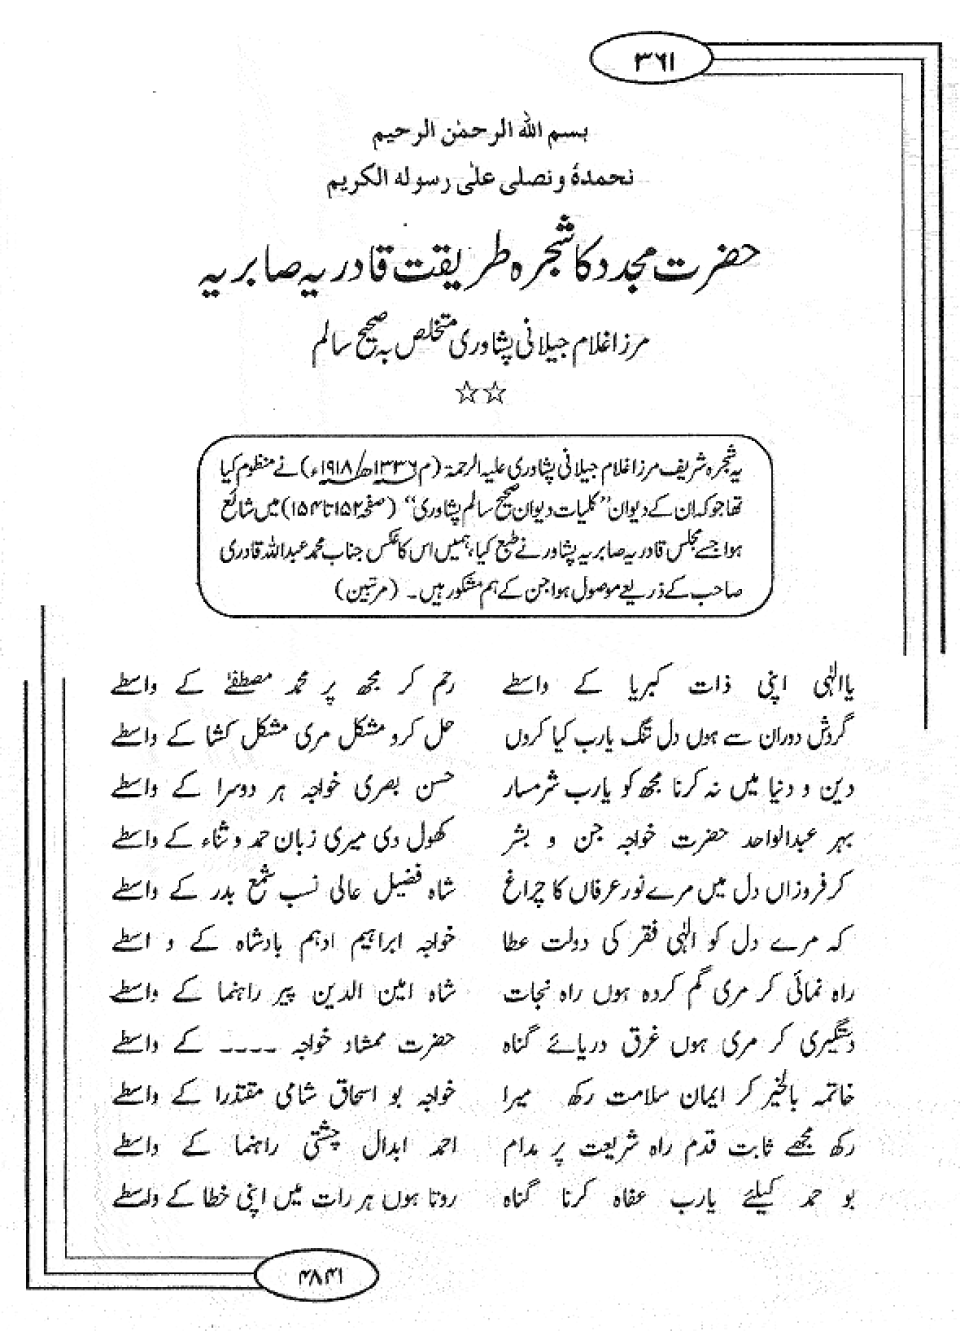 ۳۶۱
بسم اللہ الرحمٰن الرحیم
نحمدہٗ ونصلی علیٰ رسولہ الکریم
حضرت مجدد کا شجرہ طریقت قادریہ صابریہ
مرزا غلام جیلانی پشاوری متخلص بہ صحیح سالم
☆☆
یہ شجرہ شریف مرزا غلام جیلانی پشاوری علیہ الرحمۃ (م ۱۳۳۶ھ/۱۹۱۸ء) نے منظوم کیا
تھا جو کہ ان کے دیوان ”کلیات دیوان صحیح سالم پشاوری“ (صفحہ ۱۵۲ تا ۱۵۴) میں شائع
ہوا جسے مجلس قادریہ صابریہ پشاور نے طبع کیا، ہمیں اس کا عکس جناب محمد عبداللہ قادری
صاحب کے ذریعے موصول ہوا جن کے ہم مشکور ہیں۔ (مرتبین)
یا الٰہی اپنی ذات کبریا کے واسطے رحم کر مجھ پر محمد مصطفےٰ کے واسطے
گردش دوران سے ہوں دل تنگ یارب کیا کروں حل کرو مشکل مری مشکل کشا کے واسطے
دین و دنیا میں نہ کرنا مجھ کو یارب شرمسار حسن بصری خواجہ ہر دوسرا کے واسطے
بہر عبدالواحد حضرت خواجہ جن و بشر کھول دی میری زبان حمد و ثناء کے واسطے
کر فروزاں دل میں مرے نور عرفاں کا چراغ شاہ فضیل عالی نسب شمع بدر کے واسطے
کہ مرے دل کو الٰہی فقر کی دولت عطا خواجہ ابراہیم ادہم بادشاہ کے و اسطے
راہ نمائی کر مری گم کردہ ہوں راہ نجات شاہ امین الدین پیر راہنما کے واسطے
دستگیری کر مری ہوں غرق دریائے گناہ حضرت ممشاد خواجہ ---- کے واسطے
خاتمہ بالخیر کر ایمان سلامت رکھ میرا خواجہ بو اسحاق شامی مقتدرا کے واسطے
رکھ مجھے ثابت قدم راہ شریعت پر مدام احمد ابدال چشتی راہنما کے واسطے
بو حمد کیلئے یارب عفاہ کرنا گناہ روتا ہوں ہر رات میں اپنی خطا کے واسطے
۴۸۴۱